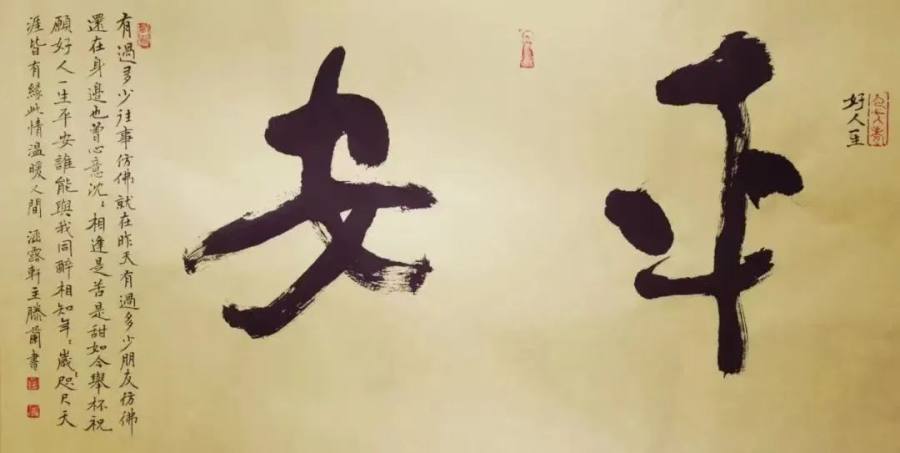 好人一生
平安
有過多少往事仿佛就在昨天有過多少朋友仿佛
還在身邊也曾心意沈々相逢是苦是甜如今舉杯祝
願好人一生平安誰能與我同醉相知年々歲々咫尺天
涯皆有緣此情溫暖人間 涵露軒主滕蘭書